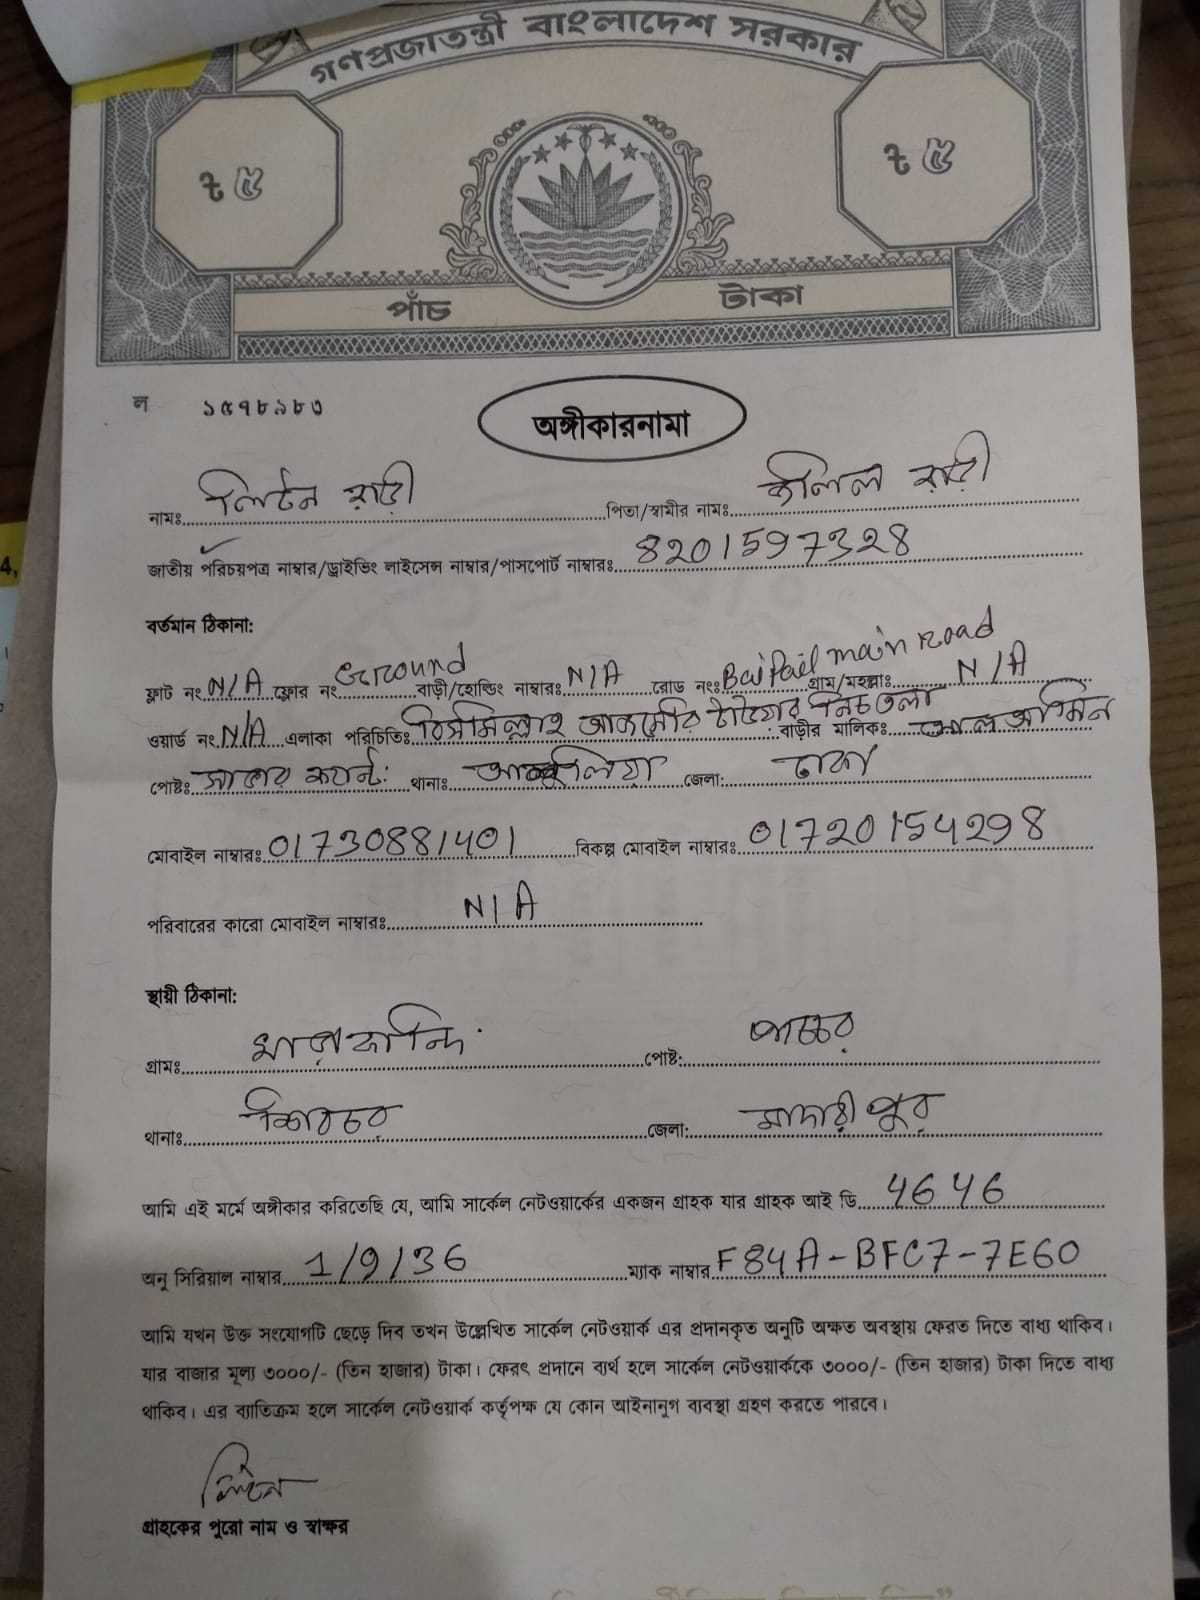 গণপ্রজাতন্ত্রী বাংলাদেশ সরকার
৳ ৫ ৳ ৫
পাঁচ টাকা
ল ১৫৭৮৯৮৩
অঙ্গীকারনামা
নামঃ লিটন হাড়ী পিতা/স্বামীর নামঃ জলিল হাড়ী
জাতীয় পরিচয়পত্র নাম্বার/ড্রাইভিং লাইসেন্স নাম্বার/পাসপোর্ট নাম্বারঃ 8201597328
বর্তমান ঠিকানা:
ফ্লাট নং N/A ফ্লোর নং Ground বাড়ী/হোল্ডিং নাম্বারঃ N/A রোড নংঃ Baipail main road গ্রাম/মহল্লাঃ N/A
ওয়ার্ড নং N/A এলাকা পরিচিতিঃ বিসমিল্লাহ আজমেরি টাওয়ার নিচতলা বাড়ীর মালিকঃ আল আমিন
পোষ্টঃ সাভার ক্যান্ট: থানাঃ আশুলিয়া জেলা: ঢাকা
মোবাইল নাম্বারঃ 01730881401 বিকল্প মোবাইল নাম্বারঃ 01720154298
পরিবারের কারো মোবাইল নাম্বারঃ N/A
স্থায়ী ঠিকানা:
গ্রামঃ পোষ্ট: পাচ্চর
থানাঃ শিবচর জেলা: মাদারীপুর
আমি এই মর্মে অঙ্গীকার করিতেছি যে, আমি সার্কেল নেটওয়ার্কের একজন গ্রাহক যার গ্রাহক আই ডি 4646
অনু সিরিয়াল নাম্বার 1/9/36 ম্যাক নাম্বার F84A-BFC7-7E60
আমি যখন উক্ত সংযোগটি ছেড়ে দিব তখন উল্লেখিত সার্কেল নেটওয়ার্ক এর প্রদানকৃত অনুটি অক্ষত অবস্থায় ফেরত দিতে বাধ্য থাকিব।
যার বাজার মূল্য ৩০০০/- (তিন হাজার) টাকা। ফেরৎ প্রদানে ব্যর্থ হলে সার্কেল নেটওয়ার্ককে ৩০০০/- (তিন হাজার) টাকা দিতে বাধ্য
থাকিব। এর ব্যাতিক্রম হলে সার্কেল নেটওয়ার্ক কর্তৃপক্ষ যে কোন আইনানুগ ব্যবস্থা গ্রহণ করতে পারবে।
লিটন
গ্রাহকের পুরো নাম ও স্বাক্ষর